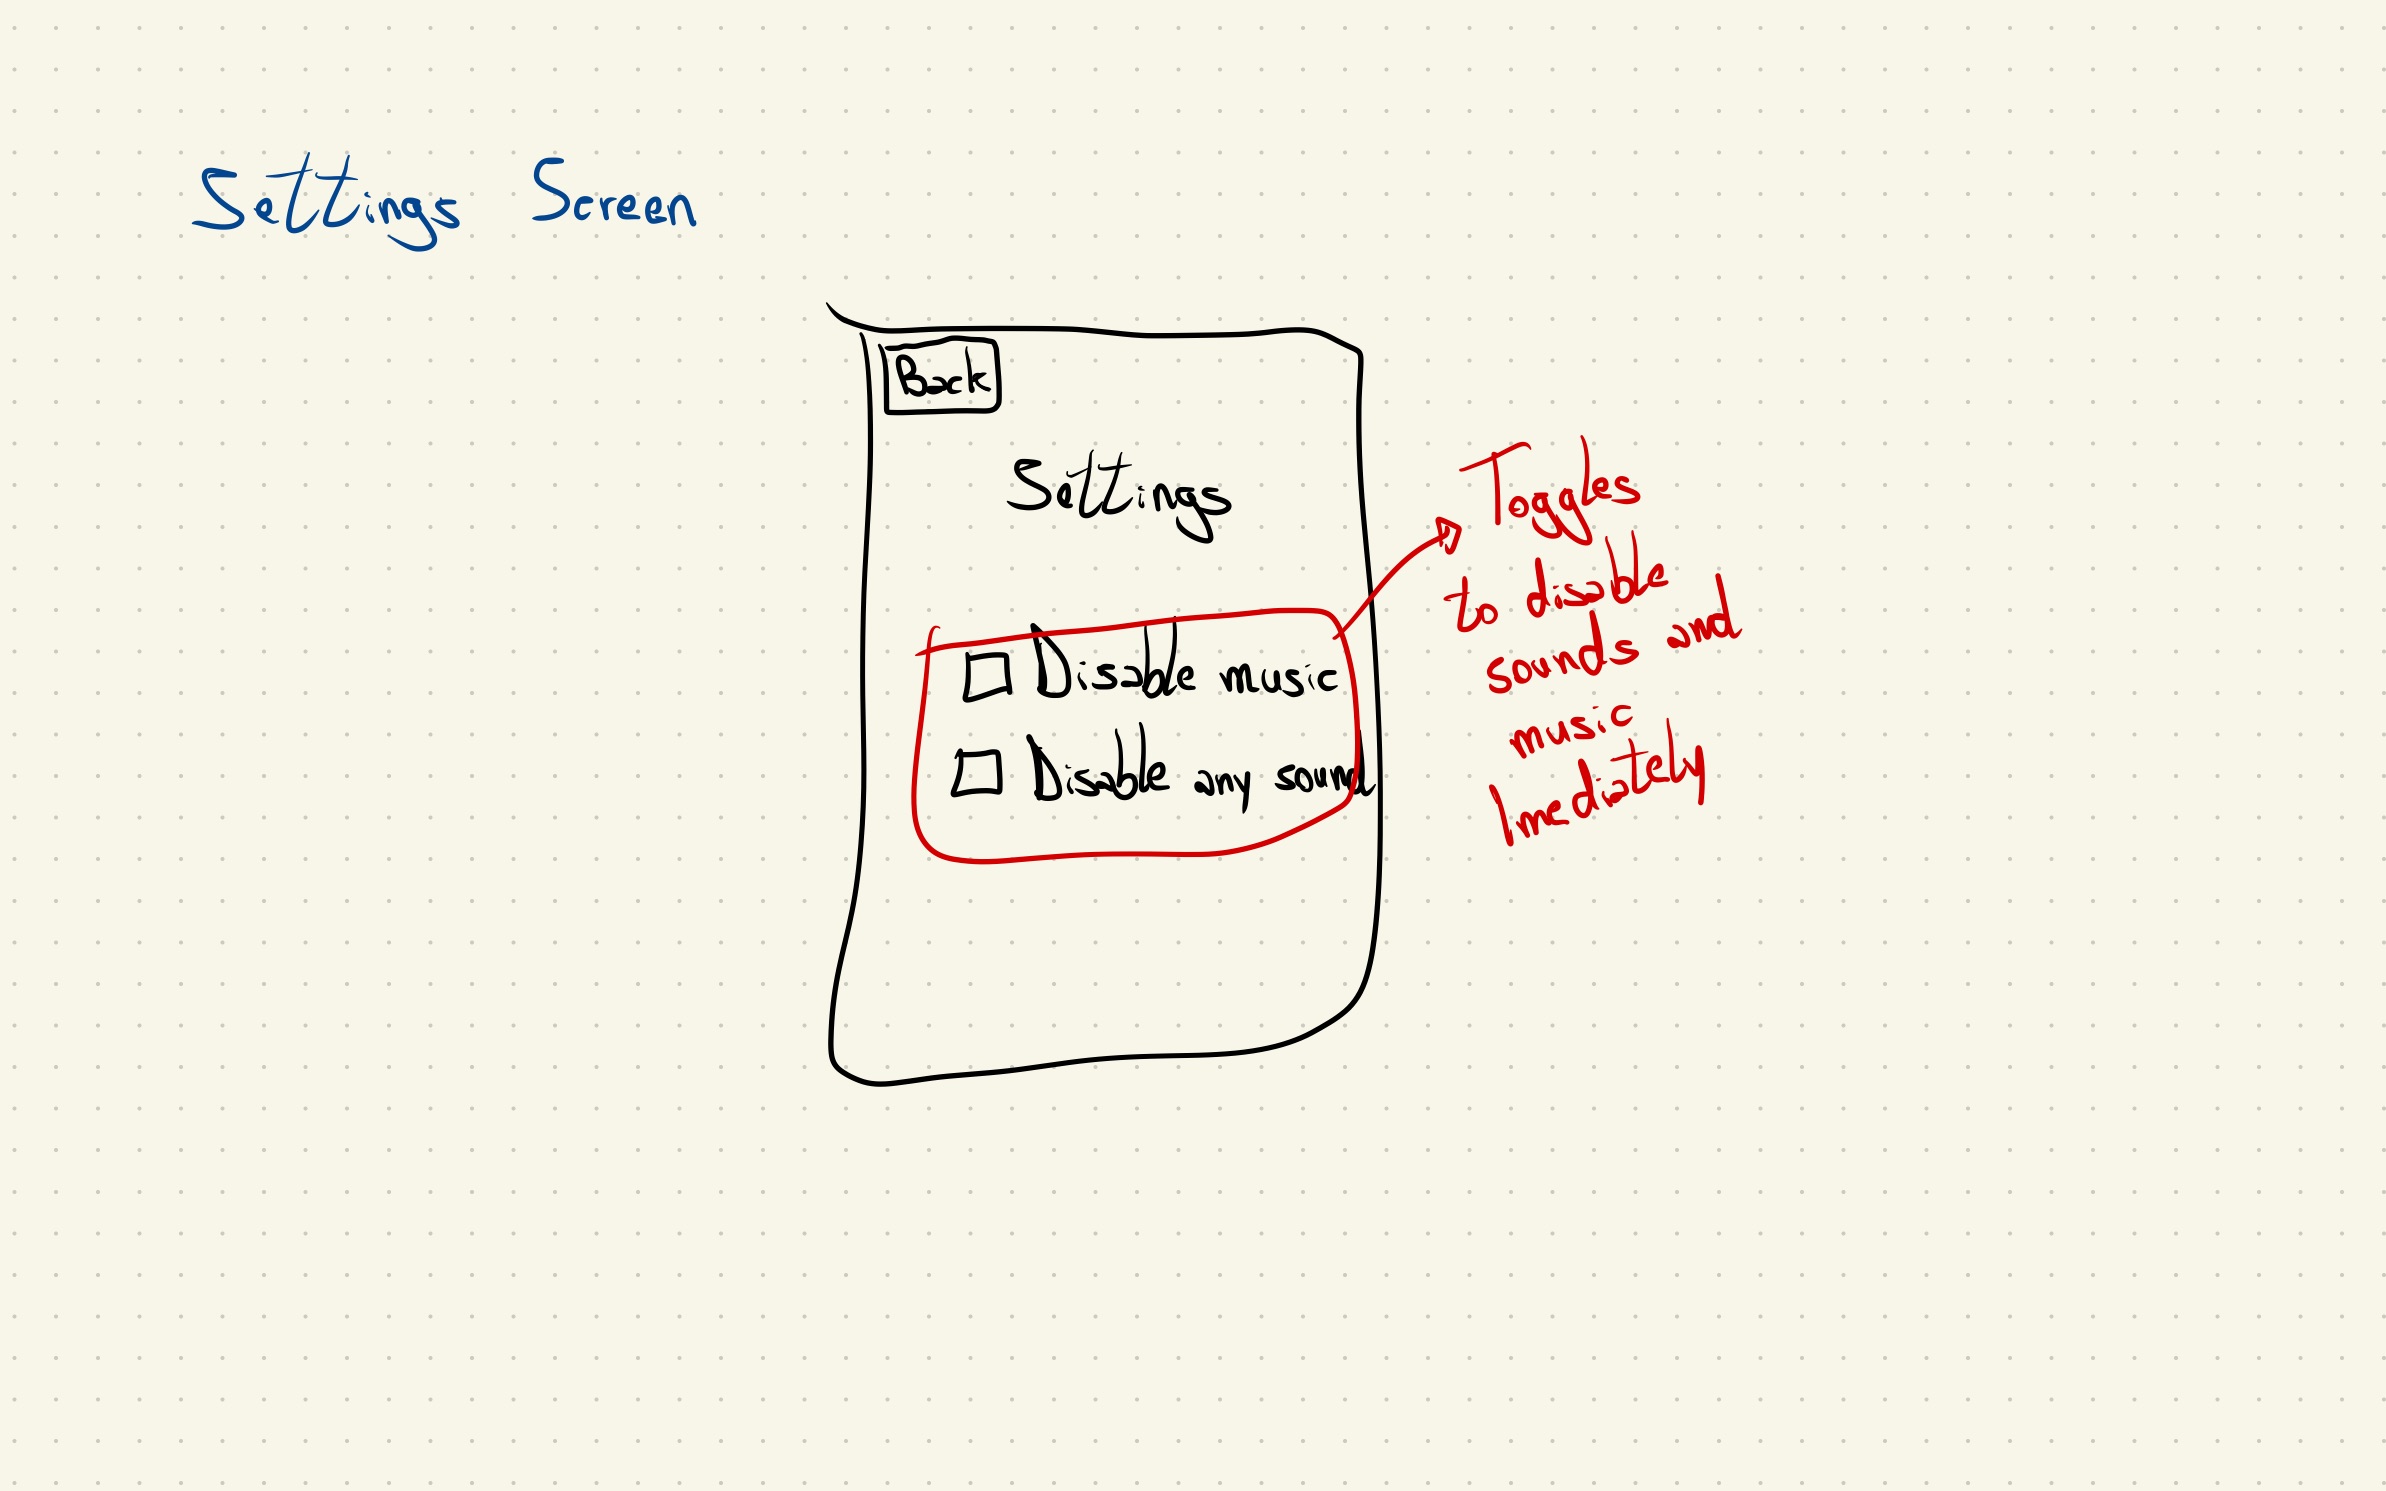 Settings Screen
Back
Settings
Disable music
Disable any sound
Toggles
to disable
sounds and
music
Imediately